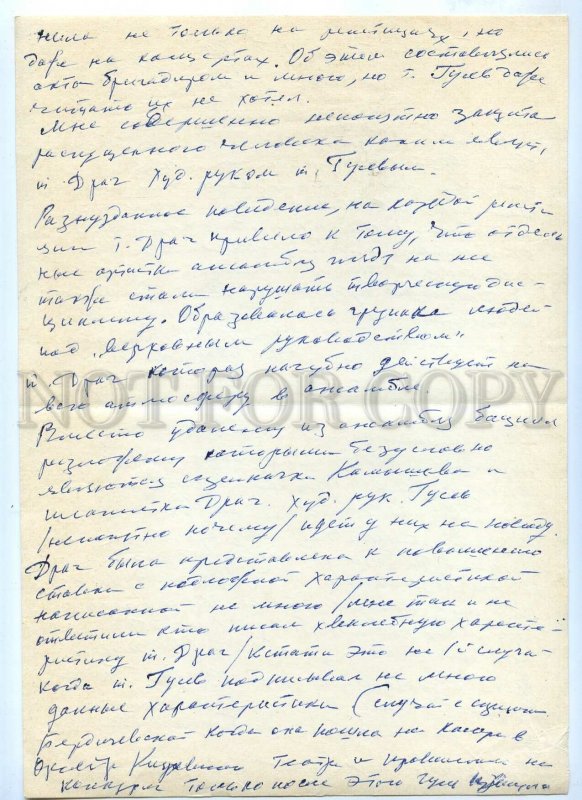 не только на репетициях, но
даже на концертах. Об этом составлялись
акты бригадиром и мною, но т. Гусев даже
читать их не хотел.
Мне совершенно непонятно защита
распущенного человека каким явл.
т. Драч Худ. руком т. Гусевым.
Разнузданное поведение, на каждой репети
ции т. Драч привело к тому, что отдель
ные артисты ансамбля глядя на нее
также стали нарушать творческую дис-
циплину. Образовалась группка людей
под "верховным руководством"
т. Драч которая пагубно действует на
всю атмосферу в ансамбле.
Вместо удаления из ансамбля
которыми безусловно
являются и
Драч. Худ. рук. Гусев
/непонятно почему/ идет у них на поводу.
Драч была представлена к повышению
ставки с подложной характеристикой
написанной не мною /мне так и не
ответили кто писал хвалебную характе-
ристику т. Драч/ Кстати это не 1й случай
когда т. Гусев подписывал не мною
данные характеристики (случай с
когда она пошла на
Театра и
конкурс только после этого
NOT FOR COPY